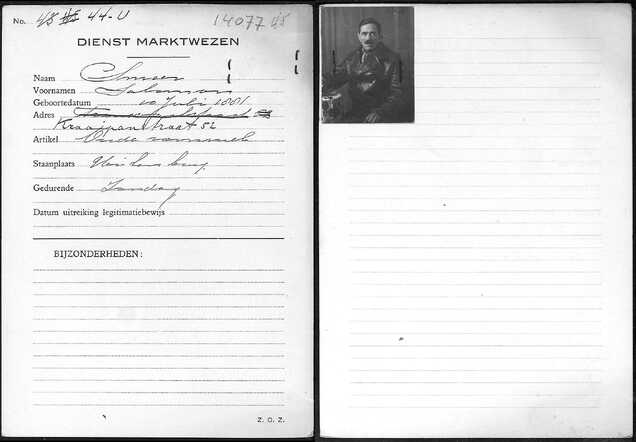 No. 45 44-U
14077 45
DIENST MARKTWEZEN
Naam
Voornamen Salomon
Geboortedatum 10 Juli 1881
Adres
Kraaipanstraat 52
Artikel Oude
Staanplaats Uilenburg
Gedurende Zondag
Datum uitreiking legitimatiebewijs
BIJZONDERHEDEN:
Z. O. Z.